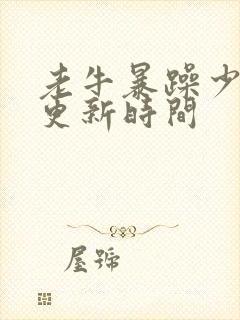 老牛暴躁少
更新時間
屋號